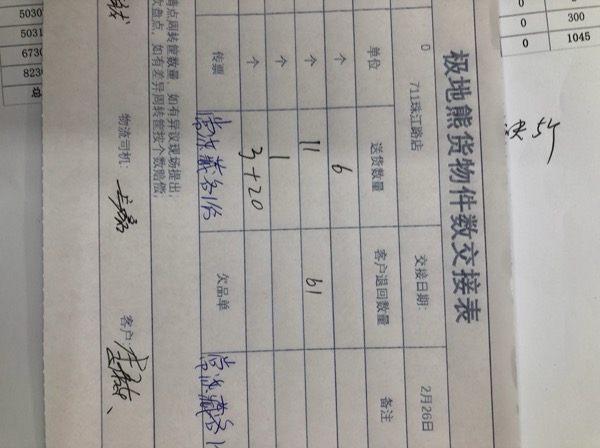 极地熊货物件数交接表
0 711珠江路店 交接日期: 2月26日
单位 送货数量 客户退回数量 备注
个 6
个 11 61
个 1
个 3+20
传票 常冷藏各1份 欠品单
清点周转筐数量 如有异议现场提出;
次盘点,如有差异周转筐按个数赔偿;
物流司机: 客户:
5030
5031
6730
8230
0 300
0 1045